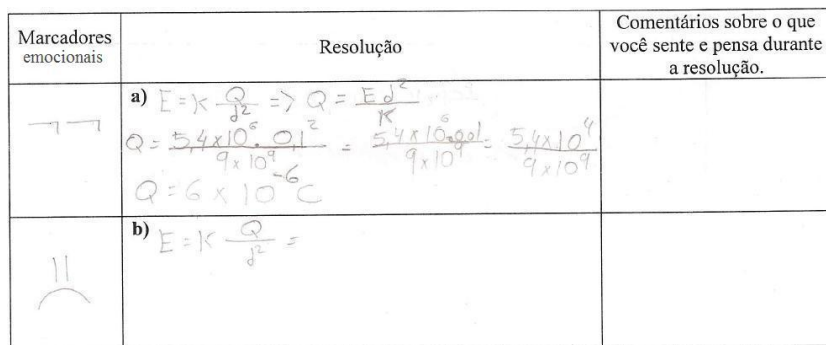 Marcadores emocionais
Resolução
Comentários sobre o que você sente e pensa durante a resolução.
a) E = K Q/d² => Q = E d²/K
Q = 5,4 x 10⁶ . 0,1²/9 x 10⁹ = 5,4 x 10⁶ . 0,01/9 x 10⁹ = 5,4 x 10⁴/9 x 10⁹
Q = 6 x 10⁻⁶ C
b) E = K Q/d² =